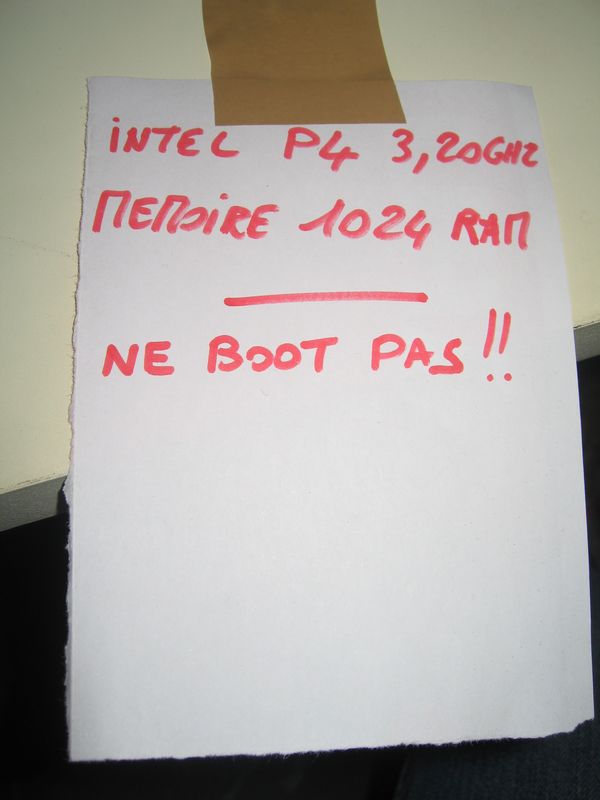 iNTEL P4 3,20GHZ
MEMOiRE 1024 RAM
NE BOOT PAS !!